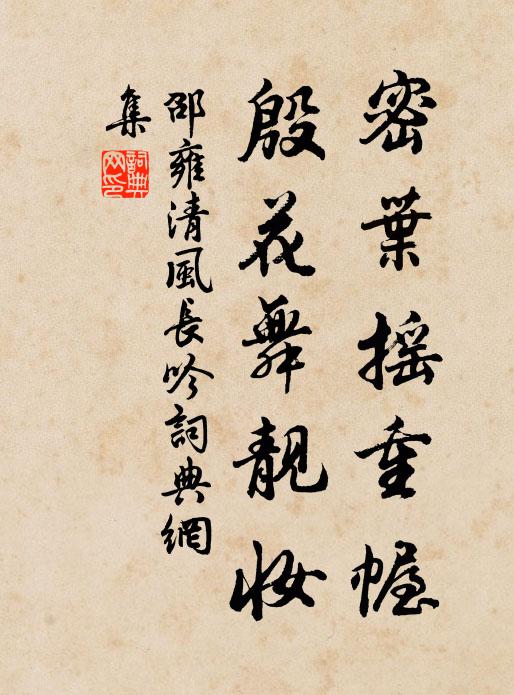 密葉摇重幄
殷花舞靚妝
邵雍清風長吟詞典網
集
詞典
网印